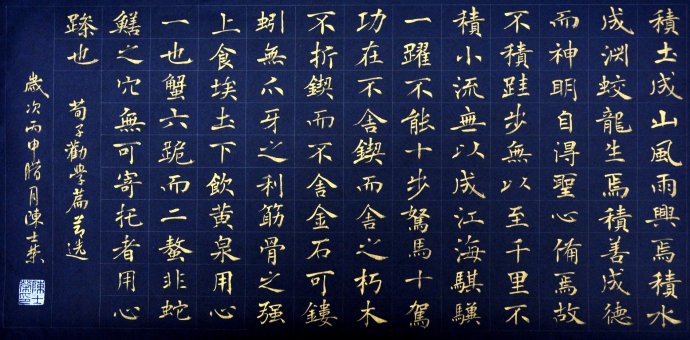 積土成山風雨興焉積水
成淵蛟龍生焉積善成德
而神明自得聖心備焉故
不積跬步無以至千里不
積小流無以成江海騏驥
一躍不能十步駑馬十駕
功在不舍鍥而舍之朽木
不折鍥而不舍金石可鏤
蚓無爪牙之利筋骨之强
上食埃土下飲黄泉用心
一也蟹六跪而二螯非蛇
鱔之穴無可寄托者用心
躁也
荀子勸學篇节选
歲次丙申腊月陳士